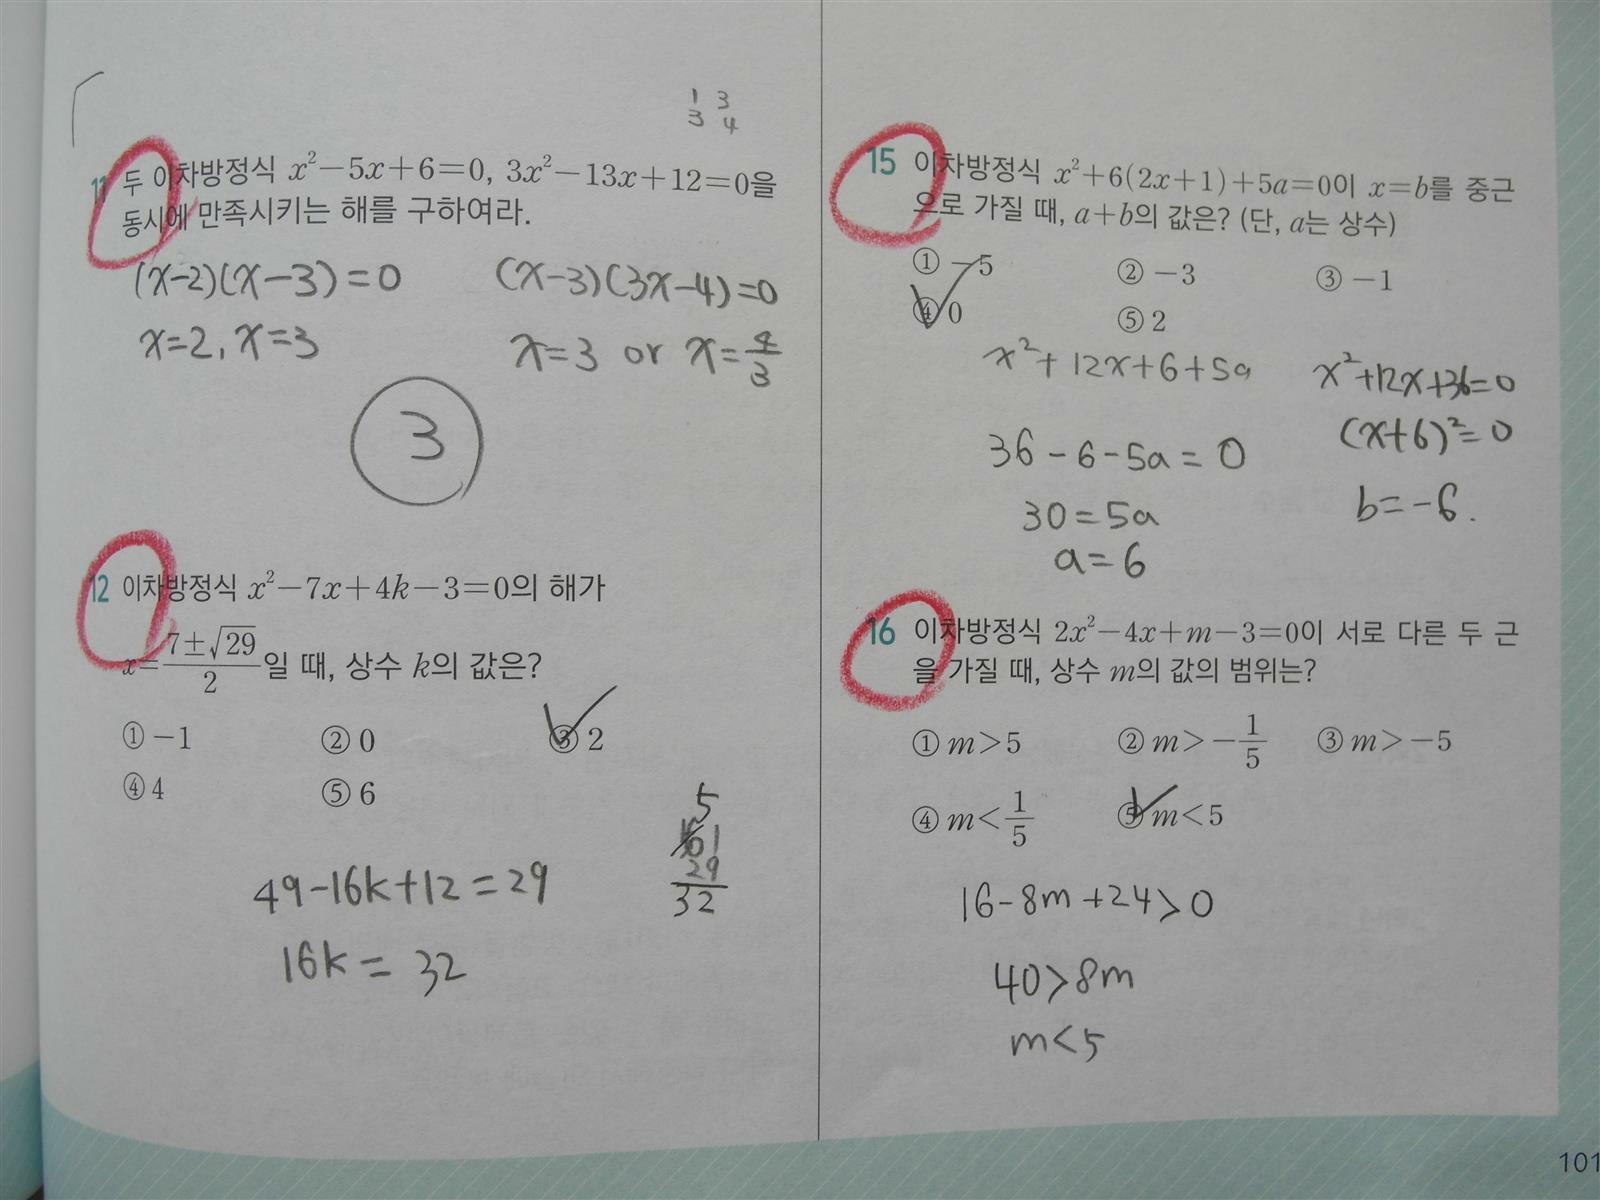 1 3
3 4
11 두 이차방정식 x²-5x+6=0, 3x²-13x+12=0을
동시에 만족시키는 해를 구하여라.
(x-2)(x-3)=0
x=2, x=3
(x-3)(3x-4)=0
x=3 or x=4/3
3
12 이차방정식 x²-7x+4k-3=0의 해가
x=(7±√29)/2일 때, 상수 k의 값은?
① -1 ② 0 ③ 2
④ 4 ⑤ 6
49-16k+12=29
16k=32
5
61
29
32
15 이차방정식 x²+6(2x+1)+5a=0이 x=b를 중근
으로 가질 때, a+b의 값은? (단, a는 상수)
① -5 ② -3 ③ -1
④ 0 ⑤ 2
x²+12x+6+5a
36-6-5a=0
30=5a
a=6
x²+12x+36=0
(x+6)²=0
b=-6.
16 이차방정식 2x²-4x+m-3=0이 서로 다른 두 근
을 가질 때, 상수 m의 값의 범위는?
① m>5 ② m>-1/5 ③ m>-5
④ m<1/5 ⑤ m<5
16-8m+24>0
40>8m
m<5
101